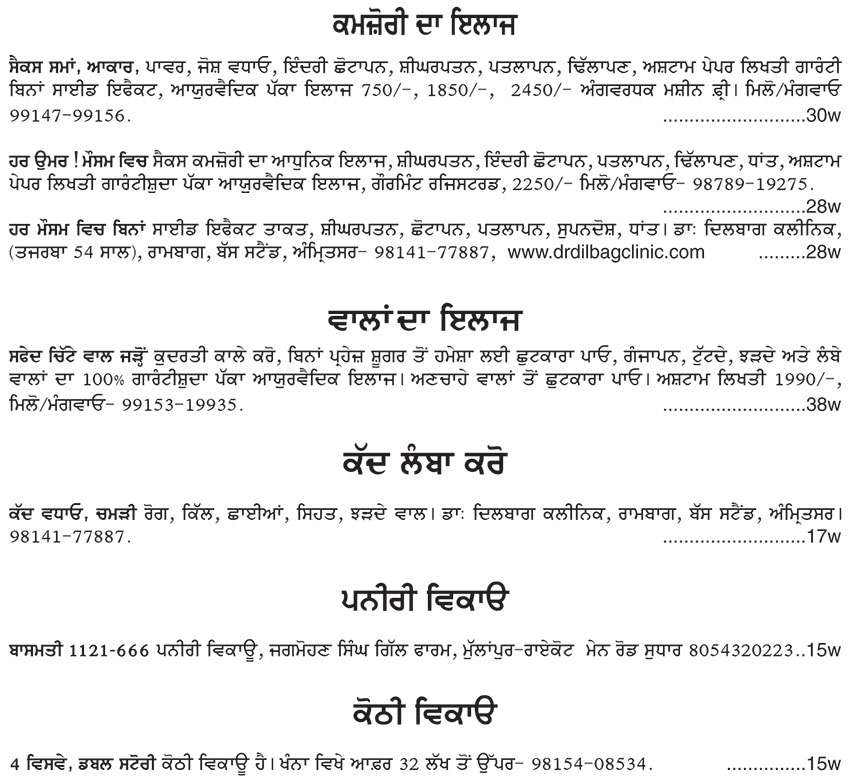 ਕਮਜ਼ੋਰੀ ਦਾ ਇਲਾਜ
ਸੈਕਸ ਸਮਾਂ, ਆਕਾਰ, ਪਾਵਰ, ਜੋਸ਼ ਵਧਾਓ, ਇੰਦਰੀ ਛੋਟਾਪਨ, ਸ਼ੀਘਰਪਤਨ, ਪਤਲਾਪਨ, ਢਿੱਲਾਪਣ, ਅਸ਼ਟਾਮ ਪੇਪਰ ਲਿਖਤੀ ਗਾਰੰਟੀ
ਬਿਨਾਂ ਸਾਈਡ ਇਫੈਕਟ, ਆਯੁਰਵੈਦਿਕ ਪੱਕਾ ਇਲਾਜ 750/-, 1850/-, 2450/- ਅੰਗਵਰਧਕ ਮਸ਼ੀਨ ਫ੍ਰੀ। ਮਿਲੋ/ਮੰਗਵਾਓ
99147-99156. ...........................30w
ਹਰ ਉਮਰ ! ਮੌਸਮ ਵਿਚ ਸੈਕਸ ਕਮਜ਼ੋਰੀ ਦਾ ਆਧੁਨਿਕ ਇਲਾਜ, ਸ਼ੀਘਰਪਤਨ, ਇੰਦਰੀ ਛੋਟਾਪਨ, ਪਤਲਾਪਨ, ਢਿੱਲਾਪਣ, ਧਾਂਤ, ਅਸ਼ਟਾਮ
ਪੇਪਰ ਲਿਖਤੀ ਗਾਰੰਟੀਸ਼ੁਦਾ ਪੱਕਾ ਆਯੁਰਵੈਦਿਕ ਇਲਾਜ, ਗੌਰਮਿੰਟ ਰਜਿਸਟਰਡ, 2250/- ਮਿਲੋ/ਮੰਗਵਾਓ- 98789-19275.
...........................28w
ਹਰ ਮੌਸਮ ਵਿਚ ਬਿਨਾਂ ਸਾਈਡ ਇਫੈਕਟ ਤਾਕਤ, ਸ਼ੀਘਰਪਤਨ, ਛੋਟਾਪਨ, ਪਤਲਾਪਨ, ਸੁਪਨਦੋਸ਼, ਧਾਂਤ। ਡਾਃ ਦਿਲਬਾਗ ਕਲੀਨਿਕ,
(ਤਜਰਬਾ 54 ਸਾਲ), ਰਾਮਬਾਗ, ਬੱਸ ਸਟੈਂਡ, ਅੰਮ੍ਰਿਤਸਰ- 98141-77887, www.drdilbagclinic.com .........28w
ਵਾਲਾਂ ਦਾ ਇਲਾਜ
ਸਫੇਦ ਚਿੱਟੇ ਵਾਲ ਜੜ੍ਹੋਂ ਕੁਦਰਤੀ ਕਾਲੇ ਕਰੋ, ਬਿਨਾਂ ਪ੍ਰਹੇਜ਼ ਸ਼ੂਗਰ ਤੋਂ ਹਮੇਸ਼ਾ ਲਈ ਛੁਟਕਾਰਾ ਪਾਓ, ਗੰਜਾਪਨ, ਟੁੱਟਦੇ, ਝੜਦੇ ਅਤੇ ਲੰਬੇ
ਵਾਲਾਂ ਦਾ 100% ਗਾਰੰਟੀਸ਼ੁਦਾ ਪੱਕਾ ਆਯੁਰਵੈਦਿਕ ਇਲਾਜ। ਅਣਚਾਹੇ ਵਾਲਾਂ ਤੋਂ ਛੁਟਕਾਰਾ ਪਾਓ। ਅਸ਼ਟਾਮ ਲਿਖਤੀ 1990/-,
ਮਿਲੋ/ਮੰਗਵਾਓ- 99153-19935. ...........................38w
ਕੱਦ ਲੰਬਾ ਕਰੋ
ਕੱਦ ਵਧਾਓ, ਚਮੜੀ ਰੋਗ, ਕਿੱਲ, ਛਾਈਆਂ, ਸਿਹਤ, ਝੜਦੇ ਵਾਲ। ਡਾਃ ਦਿਲਬਾਗ ਕਲੀਨਿਕ, ਰਾਮਬਾਗ, ਬੱਸ ਸਟੈਂਡ, ਅੰਮ੍ਰਿਤਸਰ।
98141-77887. ...........................17w
ਪਨੀਰੀ ਵਿਕਾਊ
ਬਾਸਮਤੀ 1121-666 ਪਨੀਰੀ ਵਿਕਾਊ, ਜਗਮੋਹਣ ਸਿੰਘ ਗਿੱਲ ਫਾਰਮ, ਮੁੱਲਾਂਪੁਰ-ਰਾਏਕੋਟ ਮੇਨ ਰੋਡ ਸੁਧਾਰ 8054320223..15w
ਕੋਠੀ ਵਿਕਾਊ
4 ਵਿਸਵੇ, ਡਬਲ ਸਟੋਰੀ ਕੋਠੀ ਵਿਕਾਊ ਹੈ। ਖੰਨਾ ਵਿਖੇ ਆਫ਼ਰ 32 ਲੱਖ ਤੋਂ ਉੱਪਰ- 98154-08534. ...............15w